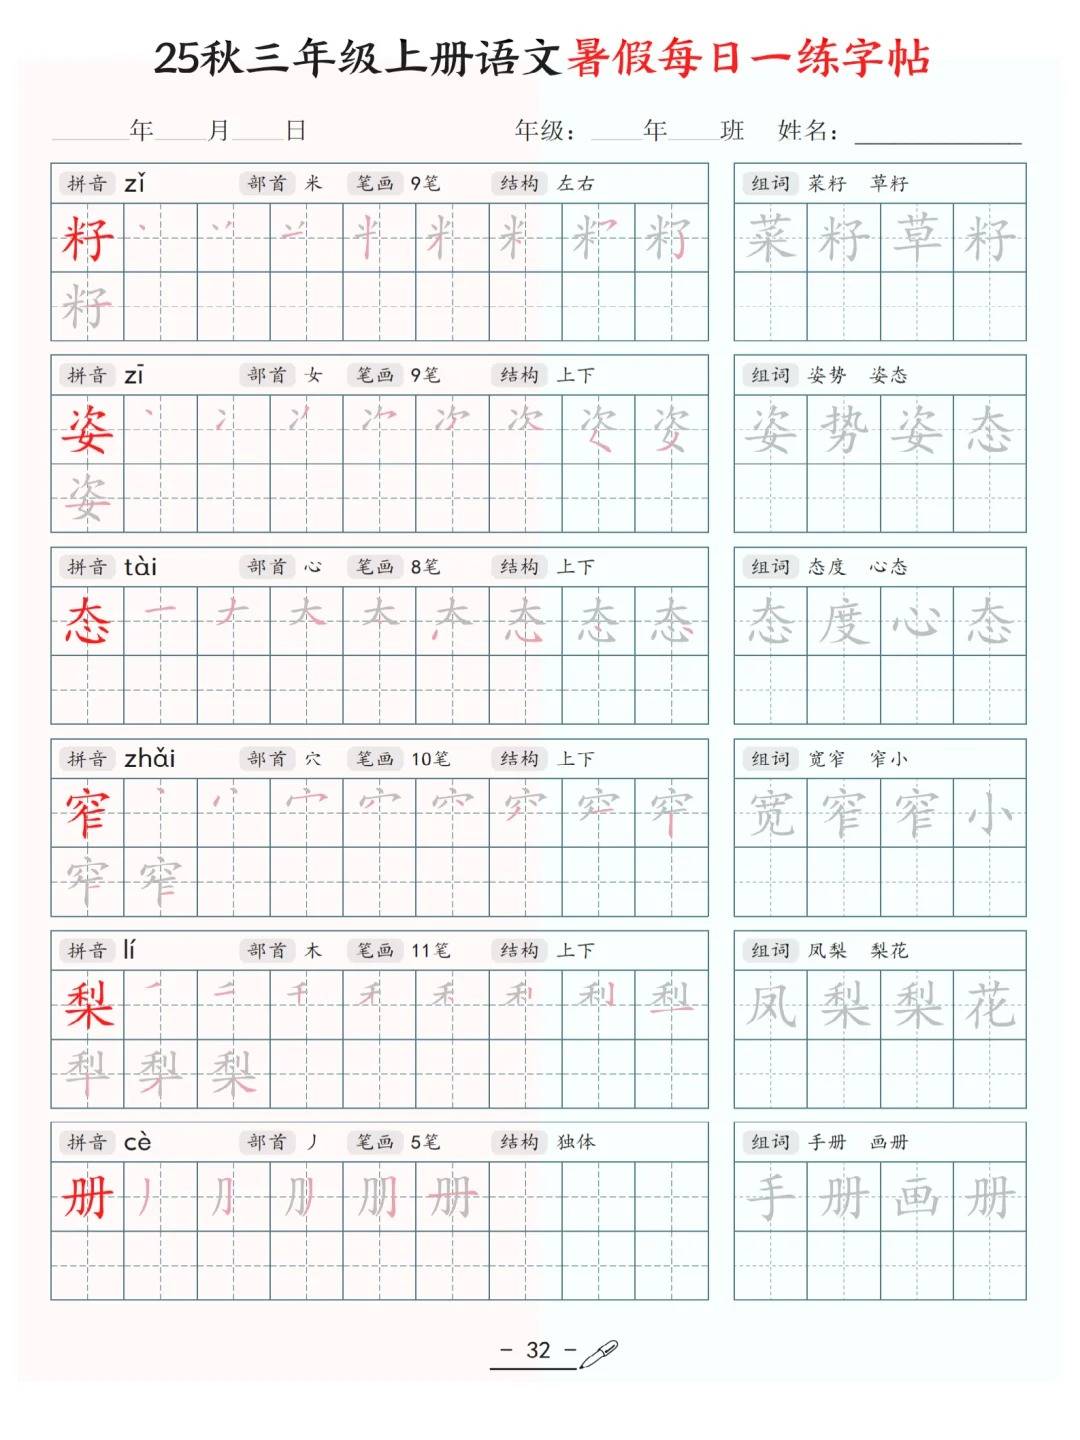 25秋三年级上册语文暑假每日一练字帖
年 月 日 年级： 年 班 姓名：
拼音 zǐ 部首 米 笔画 9笔 结构 左右 组词 菜籽 草籽
籽 菜 籽 草 籽
籽
拼音 zī 部首 女 笔画 9笔 结构 上下 组词 姿势 姿态
姿 姿 势 姿 态
姿
拼音 tài 部首 心 笔画 8笔 结构 上下 组词 态度 心态
态 态 度 心 态
拼音 zhǎi 部首 穴 笔画 10笔 结构 上下 组词 宽窄 窄小
窄 宽 窄 窄 小
窄 窄
拼音 lí 部首 木 笔画 11笔 结构 上下 组词 凤梨 梨花
梨 凤 梨 梨 花
梨 梨 梨
拼音 cè 部首 丿 笔画 5笔 结构 独体 组词 手册 画册
册 手 册 画 册
- 32 -